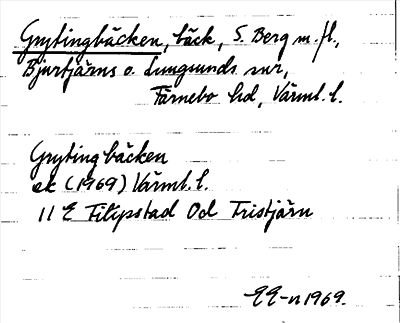 Grytingbäcken, bäck, S. Berg m. fl.,
Bjurtjärns o. Lungsunds snr,
Färnebo hd, Värml. l.
Grytingbäcken
ek (1969) Värml. l.
11 E Filipstad Od Tristjärn
EE-n 1969.